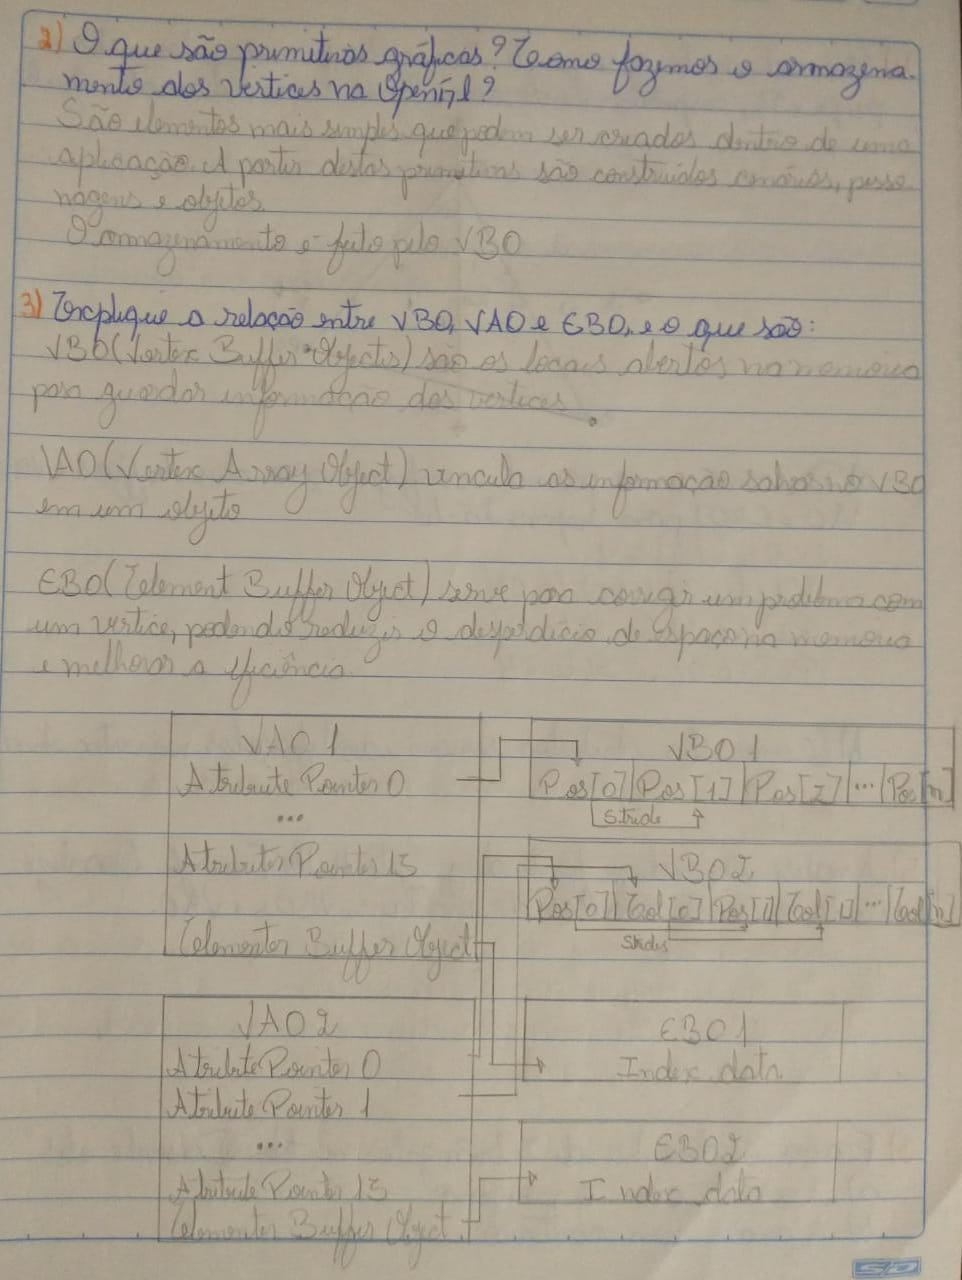 2) O que são primitivas gráficas? Como fazemos o armazena-
mento dos vertices na OpenGL?
São elementos mais simples que podem ser criados dentro de uma
aplicação. A partir destas primitivas são construídos cenários, perso
nagens e objetos.
O armazenamento é feito pelo VBO
3) Explique a relação entre VBO, VAO e EBO, e o que são:
VBO (Vertex Buffer Objects) são os locais abertos na memoria
para guardar informação dos vertices.
VAO (Vertex Array Object) vincula as informação salvas no VBO
em um objeto
EBO (Element Buffer Object) serve para corrigir um problema com
um vertice, podendo reduzir o desperdicio de espaço na memoria
e melhorar a eficiência
VAO 1
Atribute Pointer 0
...
Atributer Pointer 15
Elementer Buffer Object
VBO 1
Pos[0] Pos[1] Pos[2] ... Pos[n]
Stride
VBO 2
Pos[0] Col[0] Pos[1] Col[1] ... Col[n]
VAO 2
Atribute Pointer 0
Atribute Pointer 1
...
Atribute Pointer 15
Elementer Buffer Object
EBO 1
Index data
EBO 2
Index data
SD